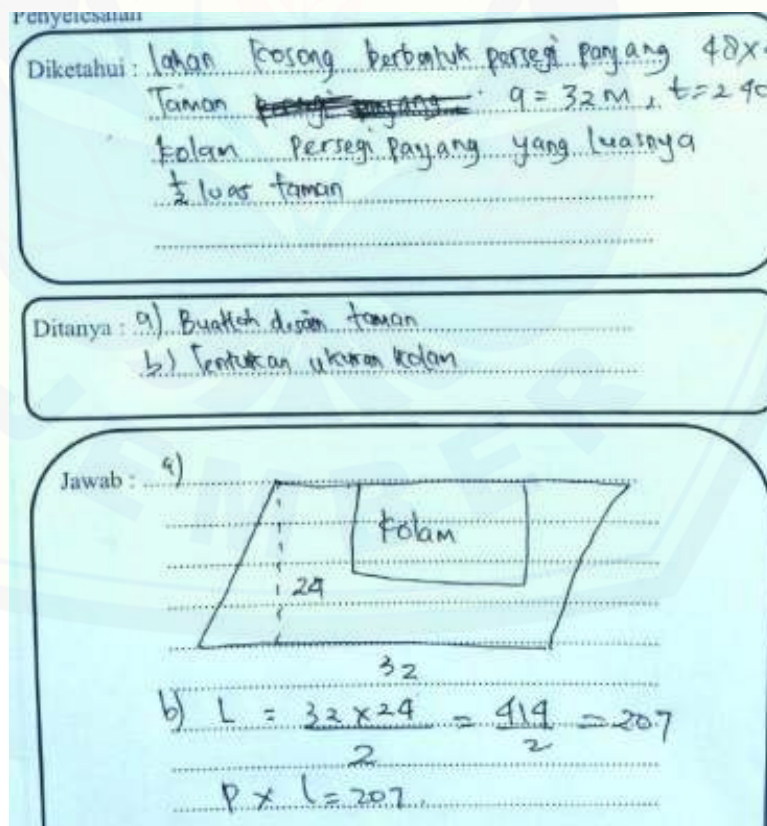 Penyelesaian
Diketahui : lahan kosong berbentuk persegi panjang 48x
Taman a = 32 m, t = 24
kolam persegi panjang yang luasnya
1/2 luas taman
Ditanya : a) Buatlah desain taman
b) Tentukan ukuran kolam
Jawab : a)
kolam
24
32
b) L = 32 x 24 / 2 = 414 / 2 = 207
P x l = 207